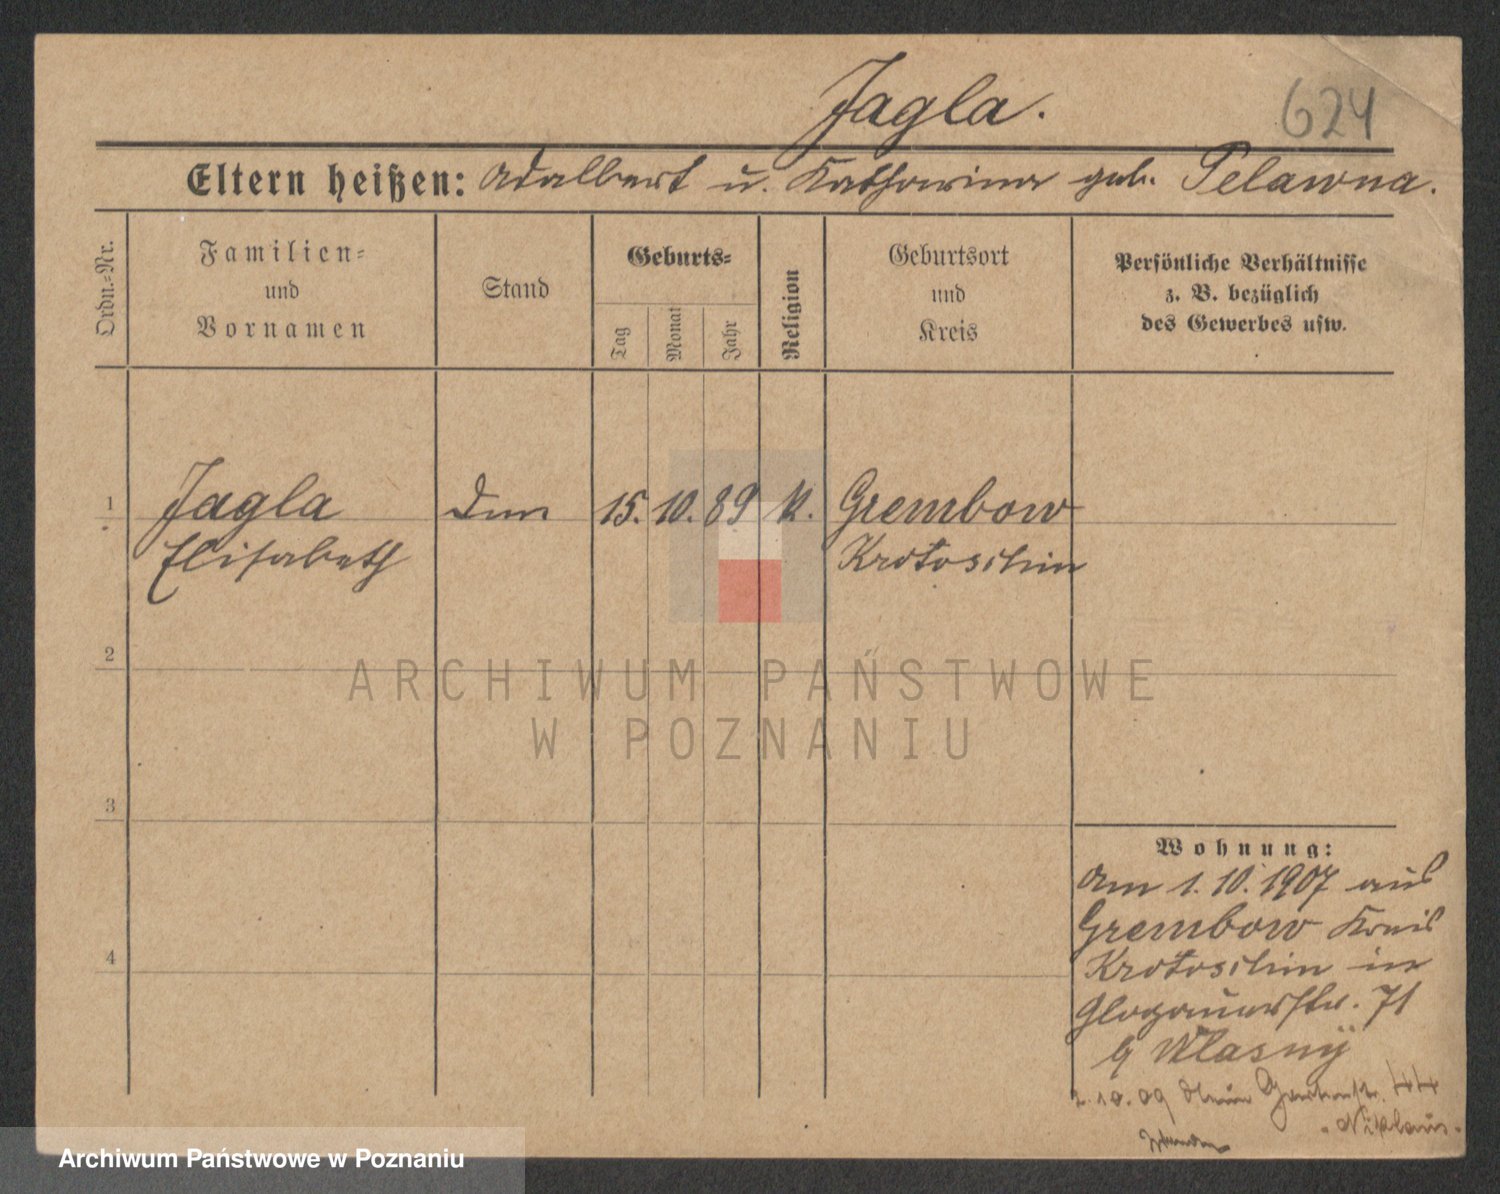 Jagla.
624
Eltern heißen: Adalbert u. Katharina geb. Pelawna.
Ordn.-Nr.
Familien-
und
Vornamen
Stand
Geburts-
Tag
Monat
Jahr
Religion
Geburtsort
und
Kreis
Persönliche Verhältnisse
z. B. bezüglich
des Gewerbes usw.
1
Jagla
Elisabeth
15. 10. 89
k.
Grembow
Krotoschin
2
3
4
ARCHIWUM PAŃSTWOWE
W POZNANIU
Wohnung:
Am 1. 10. 1907 aus
Grembow Kreis
Krotoschin in
Glogauerstr. 71
Wlasny
2. 10. 09 Gartenstr.
Niklaus.
Archiwum Państwowe w Poznaniu